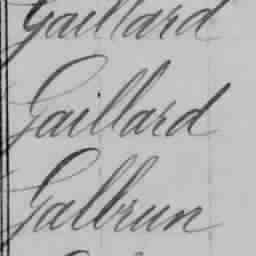 Gaillard
Gaillard
Galbrun